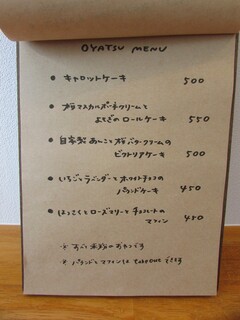 OYATSU MENU
• キャロットケーキ 500
• 桜マスカルポーネクリームと
よもぎのロールケーキ 550
• 自家製あんこと桜バタークリームの
ビクトリアケーキ 500
• いちごとラベンダーとホワイトチョコの
パウンドケーキ 450
• はっさくとローズマリーとチョコレートの
マフィン 450
※ すべて米粉のおやつです
※ パウンドとマフィンは takeout できます